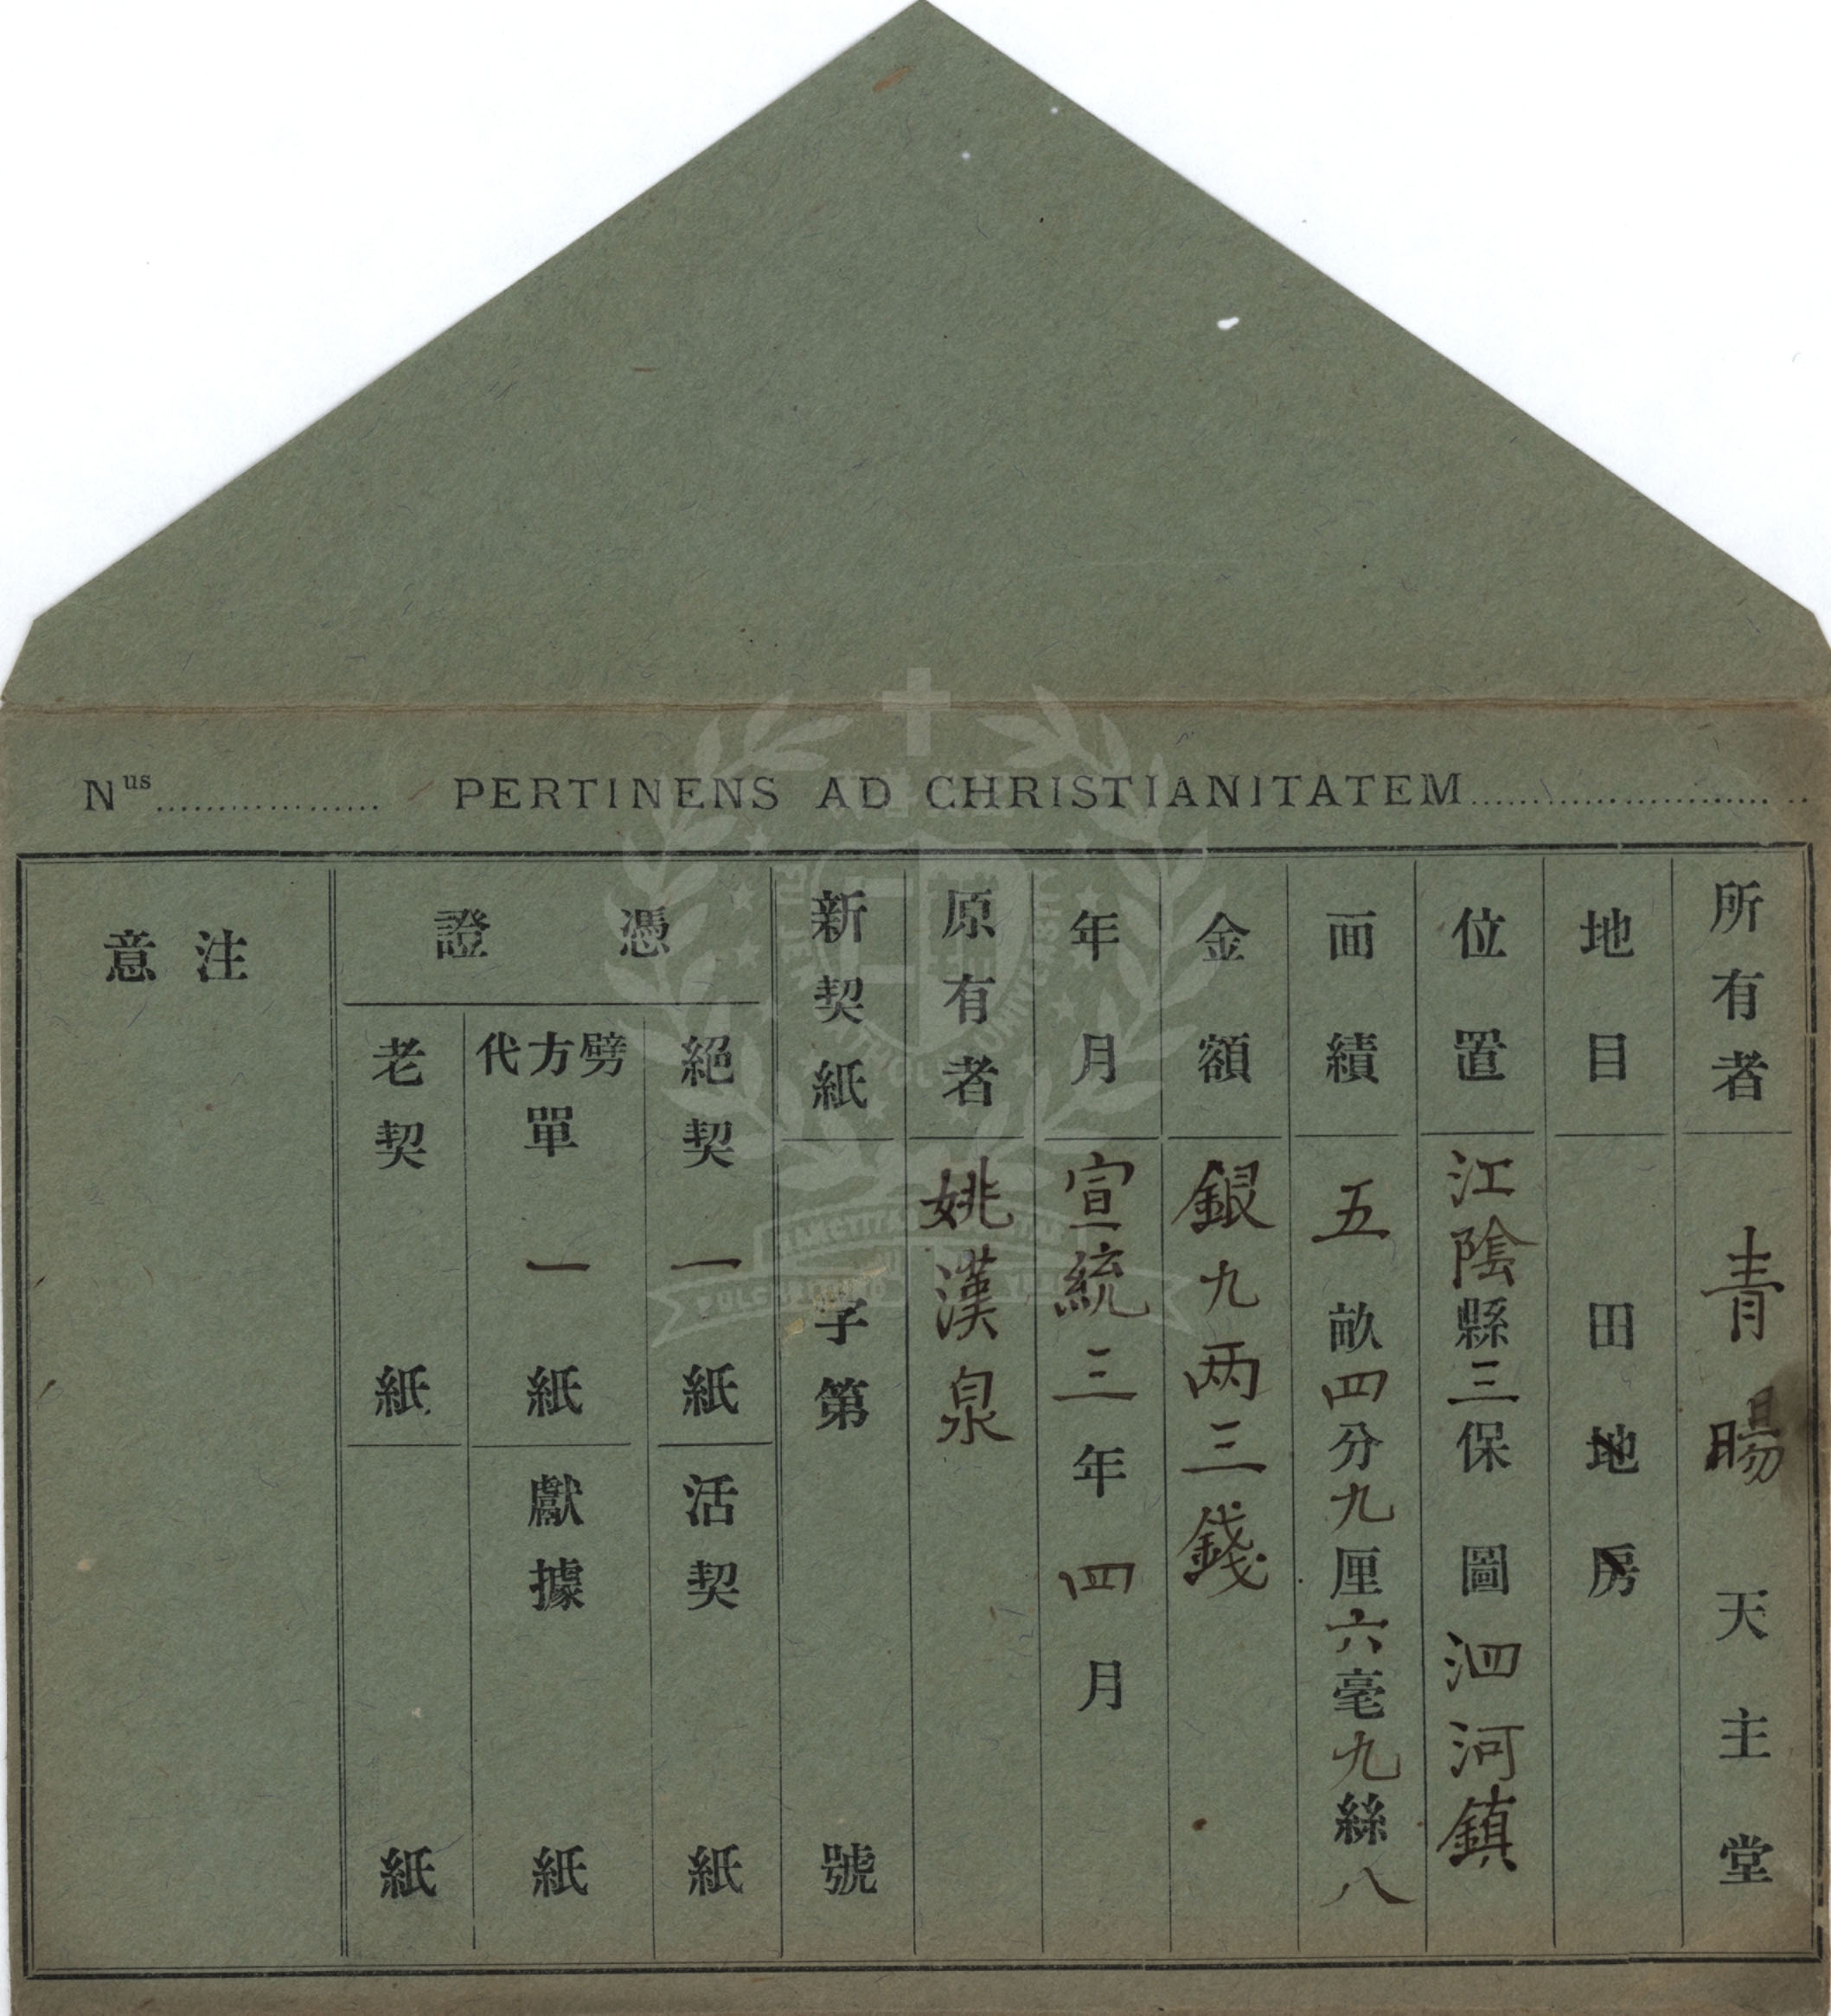 Nus.................. PERTINENS AD CHRISTIANITATEM..........................
所有者 青暘天主堂
地目 田地房
位置 江陰縣三保圖泗河鎮
面績 五畝四分九厘六毫九絲八
金額 銀九两三錢
年月 宣統三年四月
原有者 姚漢泉
新契紙 字第號
憑證
絕契一紙 活契紙
劈方代單一紙 獻據紙
老契紙 紙
注意